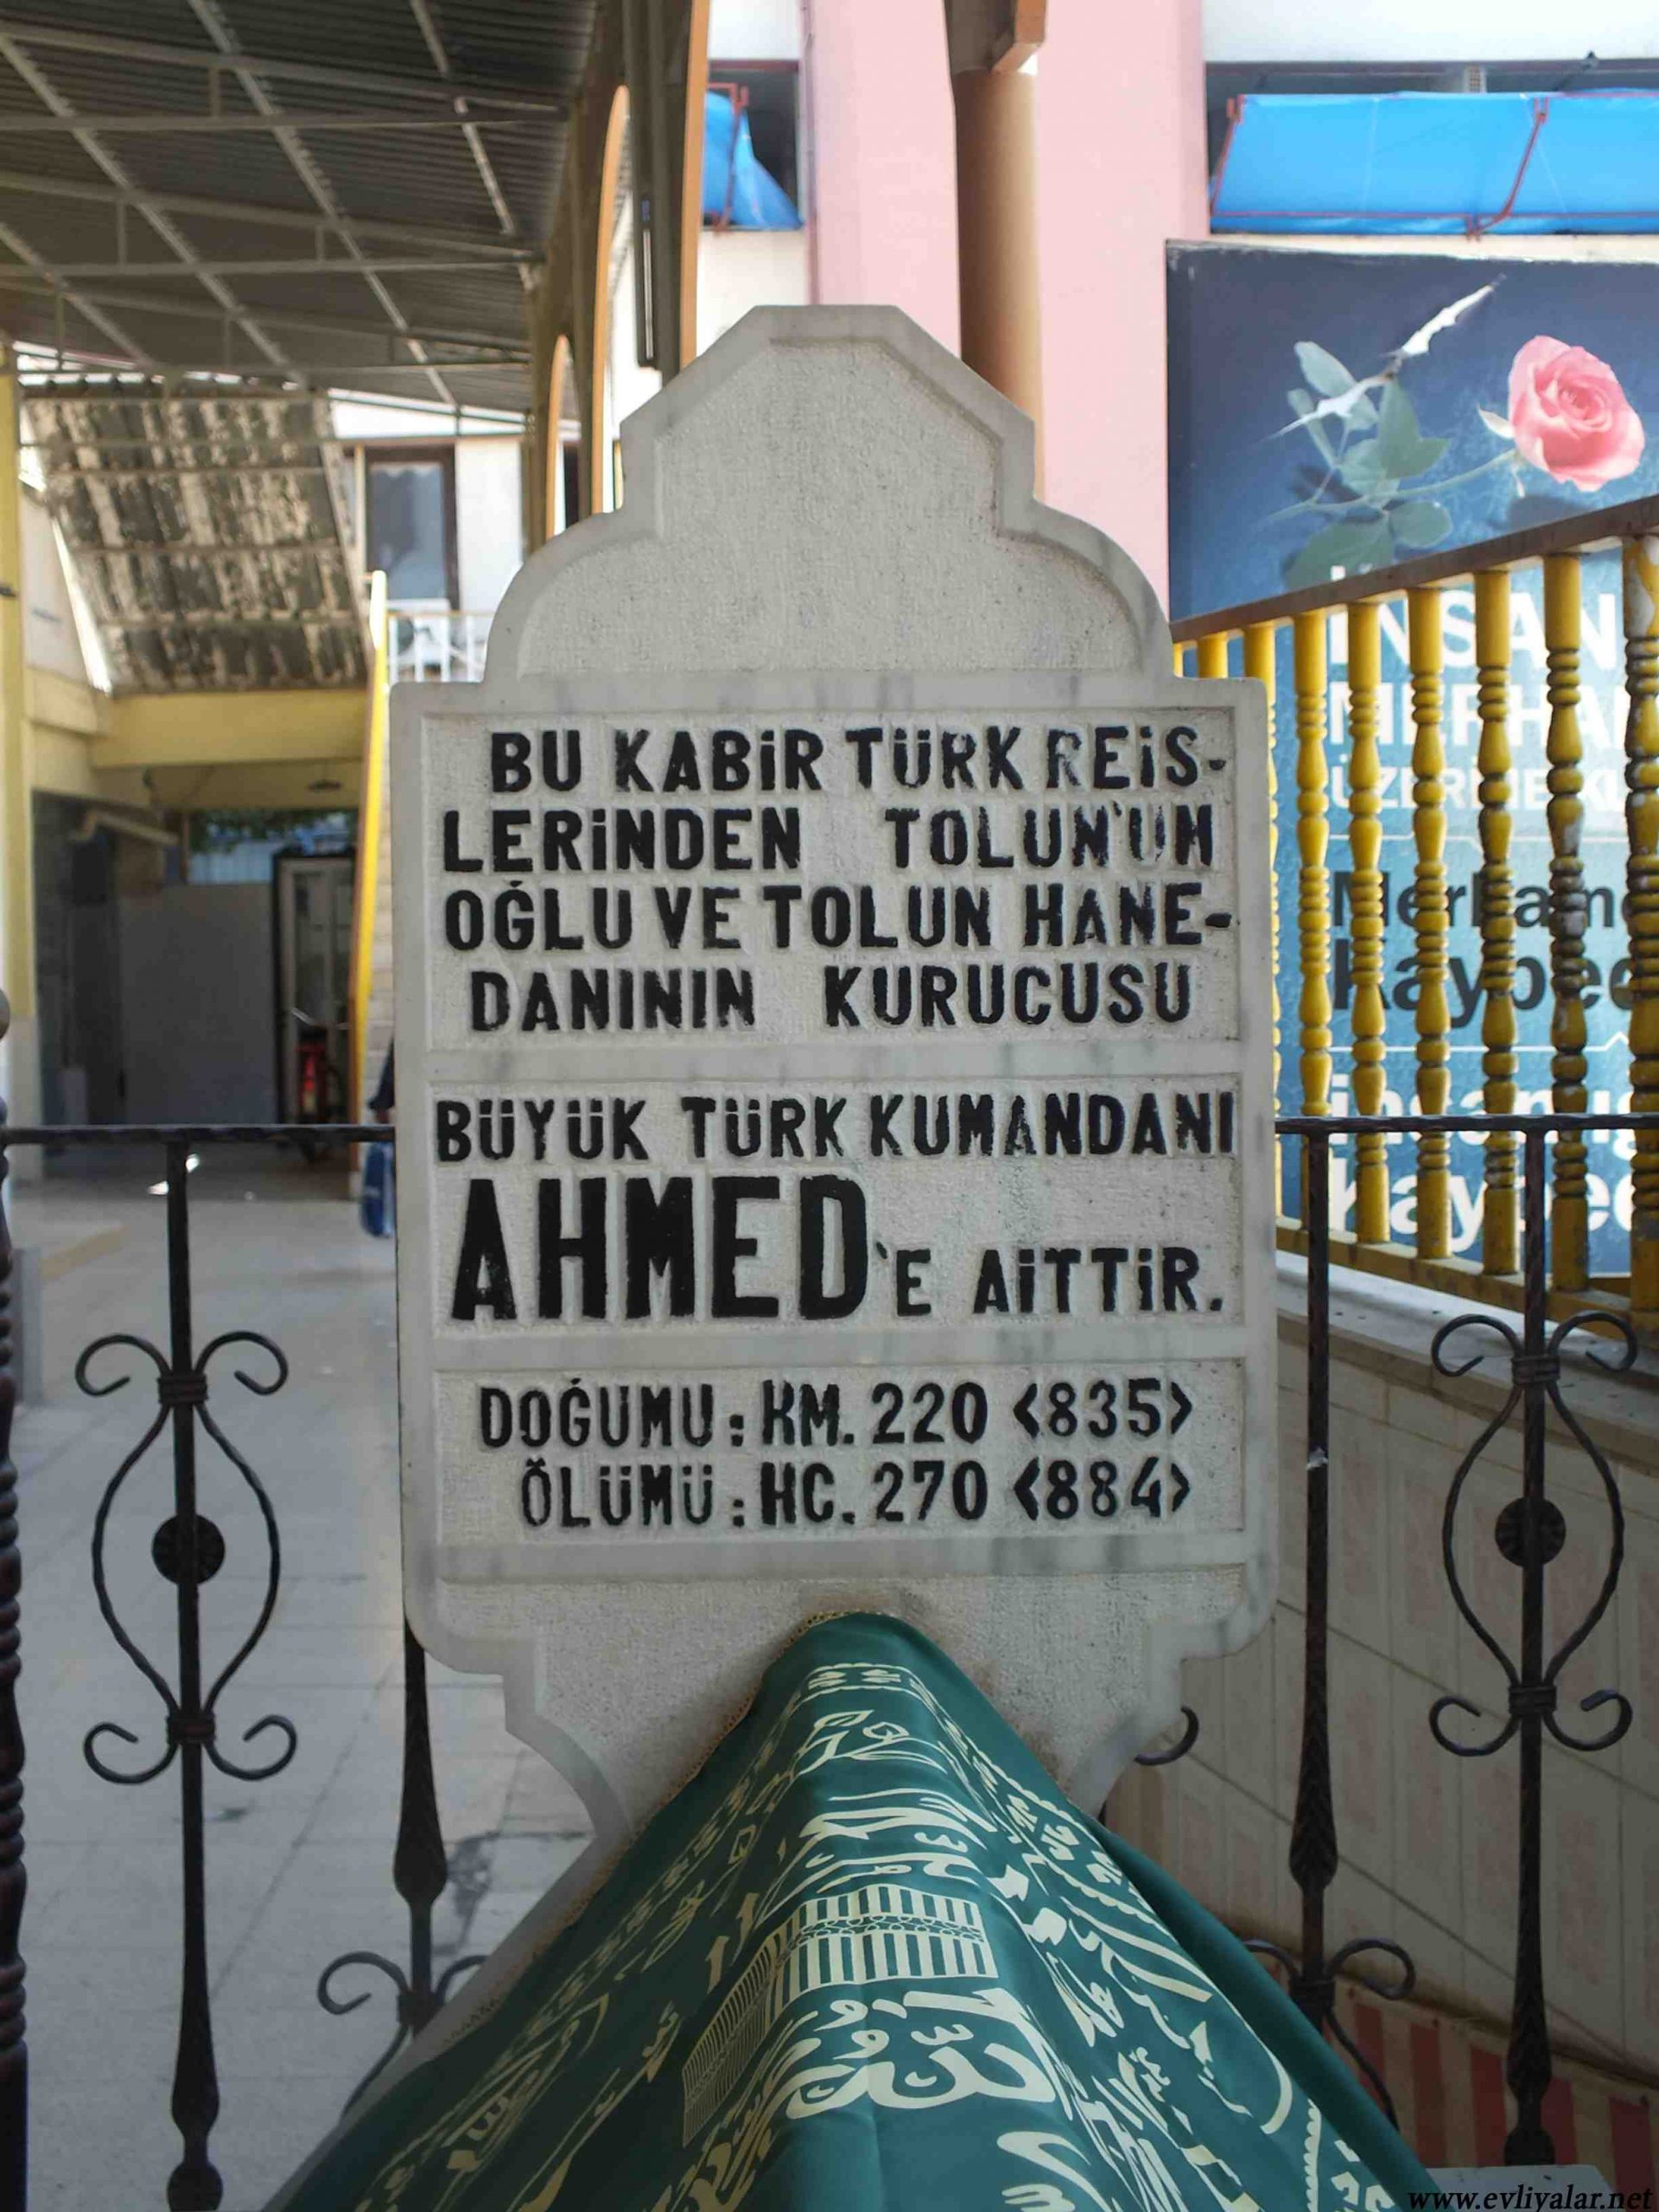 BU KABİR TÜRK REİS-
LERİNDEN TOLUN'UN
OĞLU VE TOLUN HANE-
DANININ KURUCUSU
BÜYÜK TÜRK KUMANDANI
AHMED'E AİTTİR.
DOĞUMU: KM. 220 <835>
ÖLÜMÜ: HC. 270 <884>
İNSAN
www.evliyalar.net